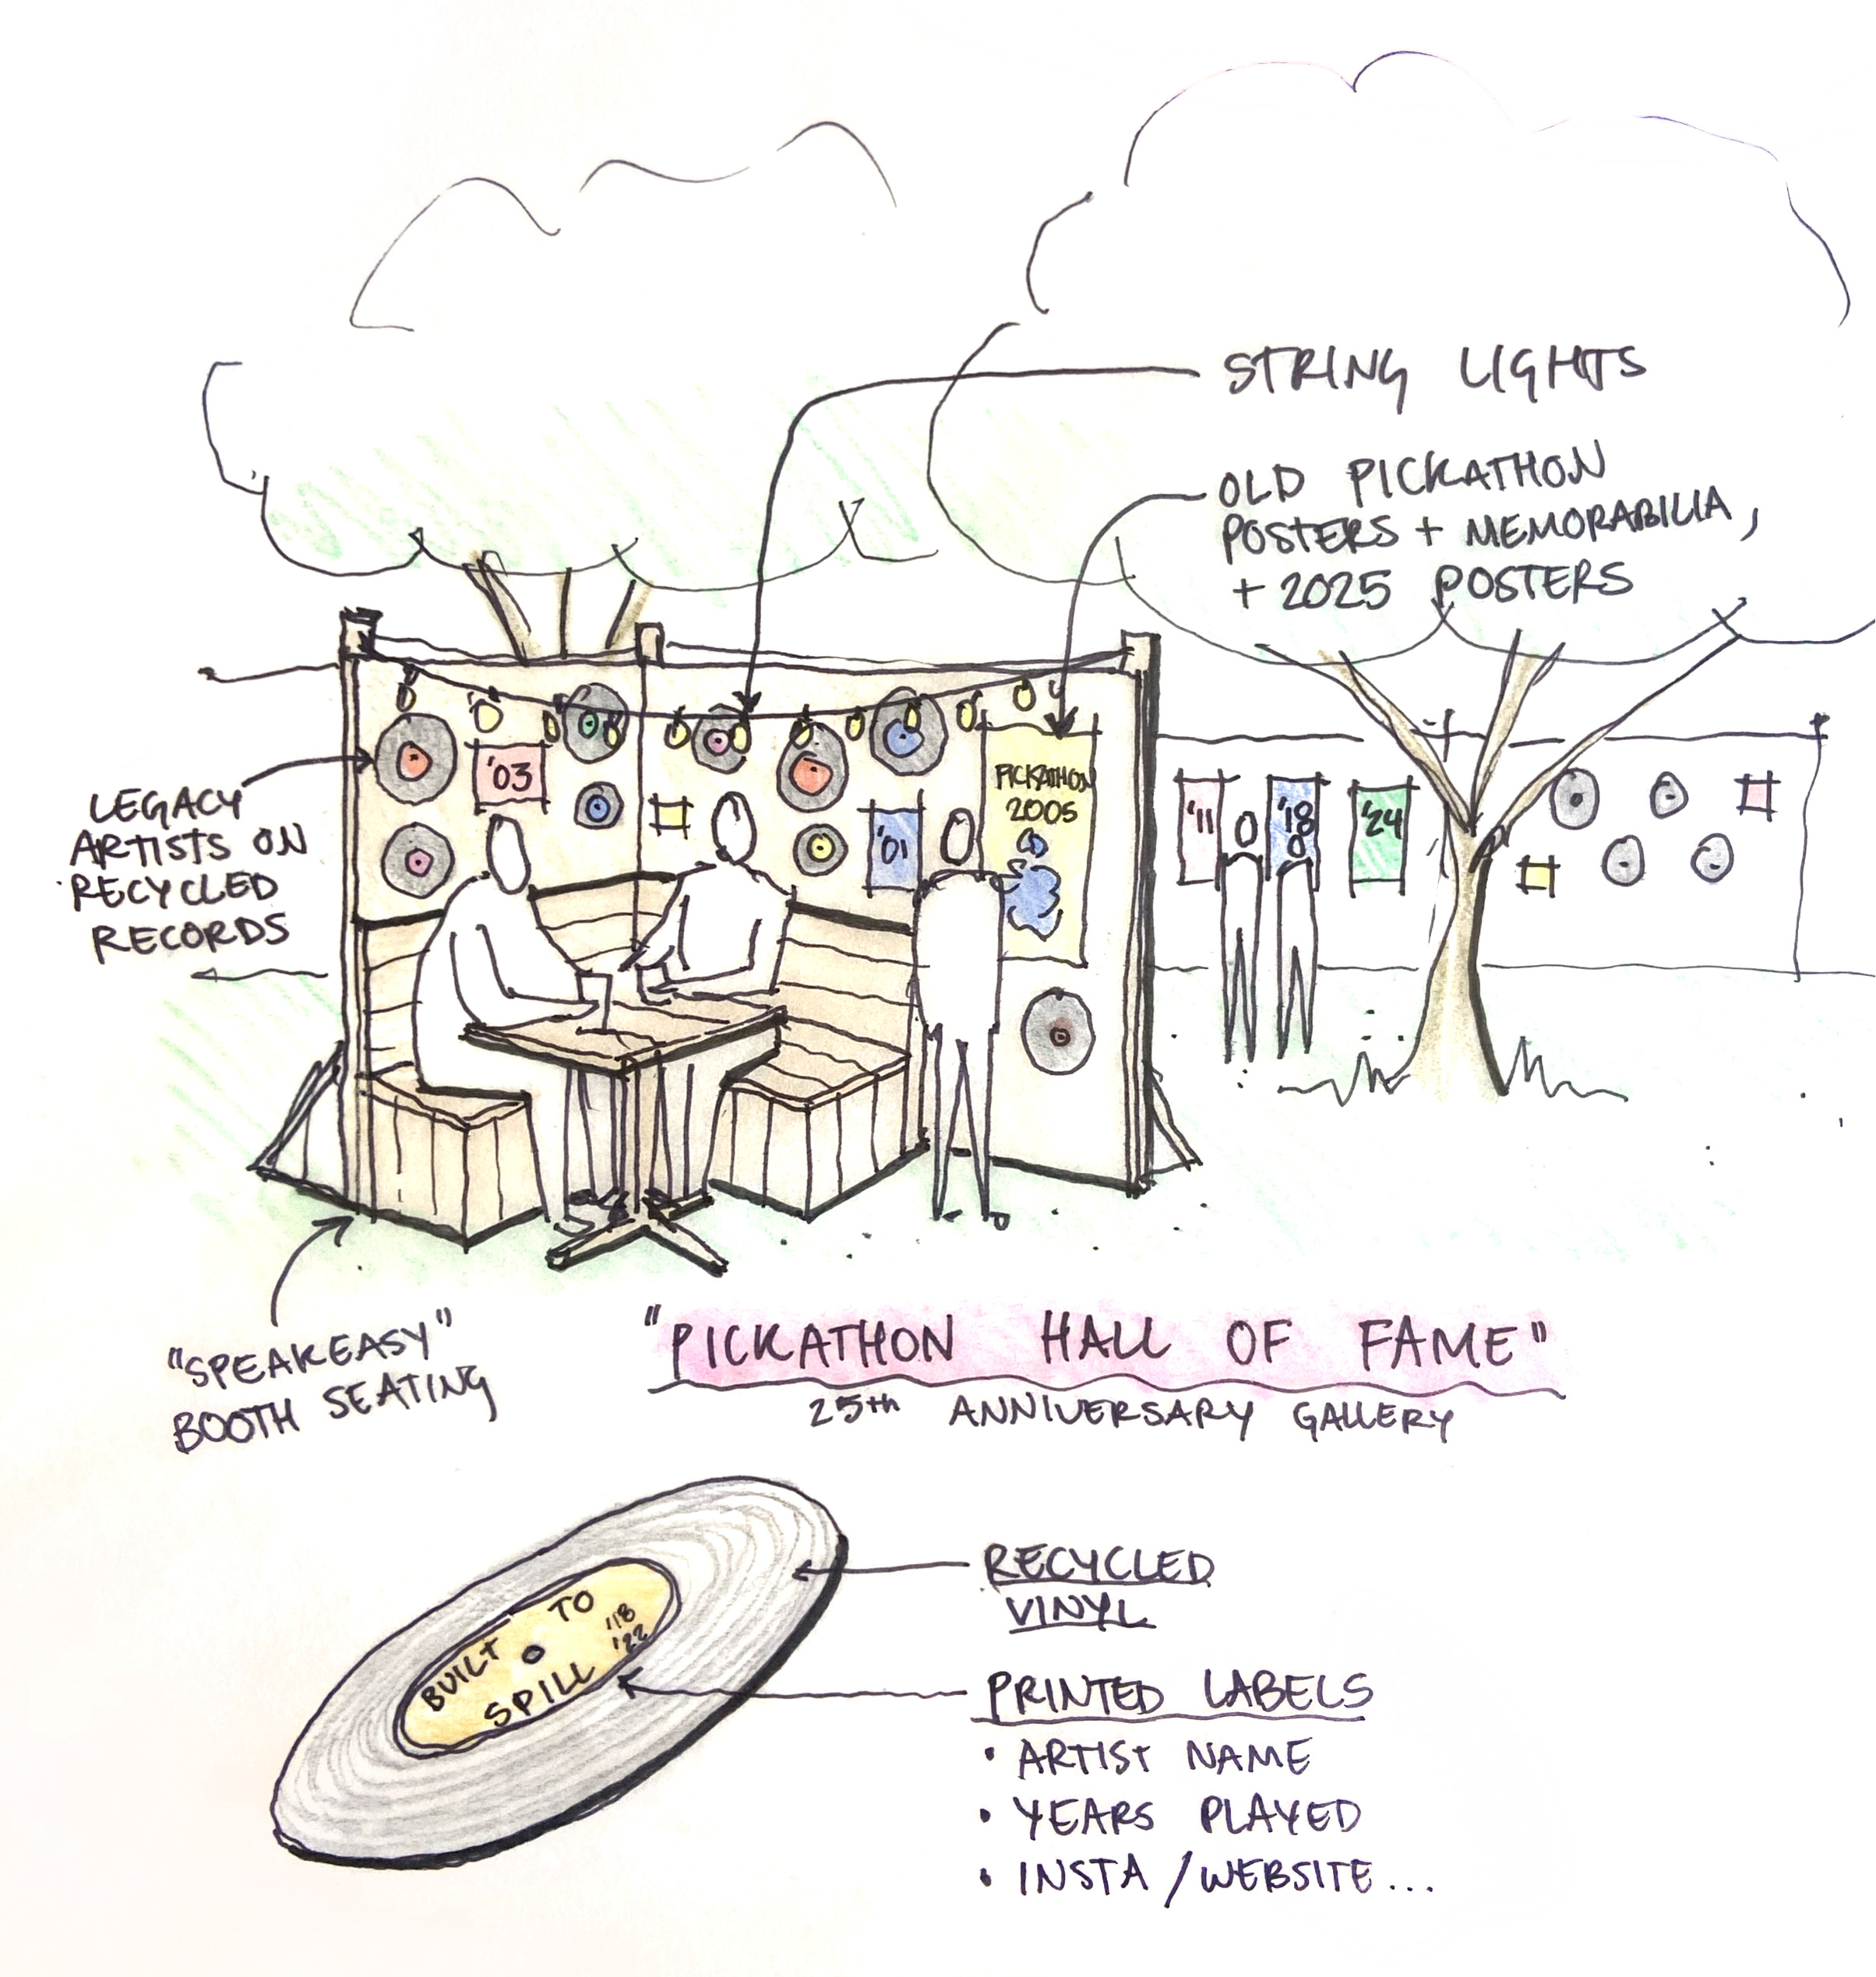 STRING LIGHTS
OLD PICKATHON
POSTERS + MEMORABILIA,
+ 2025 POSTERS
LEGACY
ARTISTS ON
RECYCLED
RECORDS
'03
'01
PICKATHON
2005
'11
'18
'24
"SPEAKEASY"
BOOTH SEATING
"PICKATHON HALL OF FAME"
25th ANNIVERSARY GALLERY
BUILT TO
SPILL
'18
'22
RECYCLED
VINYL
PRINTED LABELS
• ARTIST NAME
• YEARS PLAYED
• INSTA/WEBSITE...